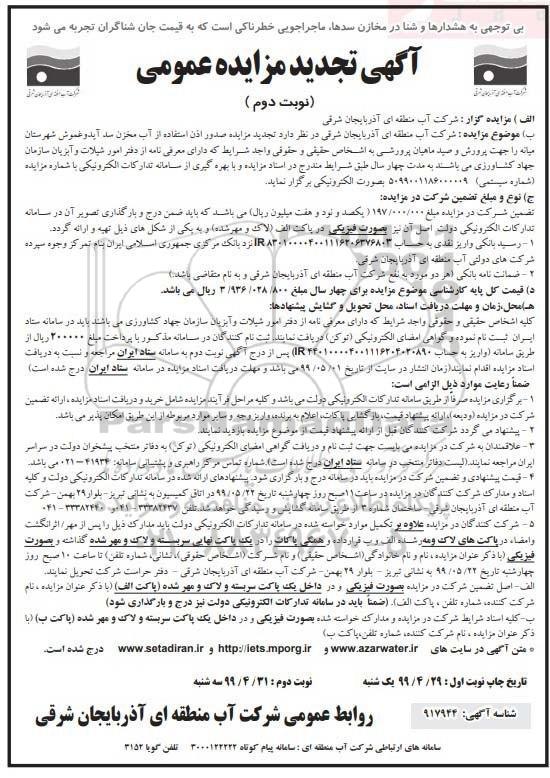 بی توجهی به هشدارها و شنا در مخازن سدها، ماجراجویی خطرناکی است که به قیمت جان شناگران تجربه می شود
آگهی تجدید مزایده عمومی
(نوبت دوم )
شرکت آب منطقه ای آذربایجان شرقی
الف ) مزایده گزار : شرکت آب منطقه ای آذربایجان شرقی
ب) موضوع مزایده : شرکت آب منطقه ای آذربایجان شرقی در نظر دارد تجدید مزایده صدور اذن استفاده از آب مخزن سد آیدوغموش شهرستان
میانه را جهت پرورش و صید ماهیان پرورشی به اشخاص حقیقی و حقوقی واجد شرایط که دارای معرفی نامه از دفتر امور شیلات و آبزیان سازمان
جهاد کشاورزی می باشند به مدت چهار سال طبق شرایط مندرج در اسناد مزایده و با بهره گیری از سامانه تدارکات الکترونیکی با شماره مزایده
(شماره سیستمی) ۵۰۹۹۰۰۱۱۸۶۰۰۰۰۰۹ بصورت الکترونیکی برگزار نماید.
ج) نوع و مبلغ تضمین شرکت در مزایده:
تضمین شرکت در مزایده مبلغ ۱۹۷/۰۰۰/۰۰۰ ( یکصد و نود و هفت میلیون ریال) می باشد که باید ضمن درج و بارگذاری تصویر آن در سامانه
تدارکات الکترونیکی دولت اصل آن نیز بصورت فیزیکی در پاکت الف (لاک و مهرشده) و به یکی از شکل های ذیل تهیه و ارائه گردد.
۱ - رسید بانکی واریز نقدی به حساب IR ۸۳۰۱۰۰۰۰۴۰۰۱۱۱۶۲۰۶۳۷۶۸۰۳ نزد بانک مرکزی جمهوری اسلامی ایران بنام تمرکز وجوه سپرده
شرکت های دولتی آب منطقه ای آذربایجان شرقی.
۲ - ضمانت نامه بانکی (هر دو مورد به نفع شرکت آب منطقه ای آذربایجان شرقی و به نام متقاضی باشد.)
د) قیمت کل پایه کارشناسی موضوع مزایده برای چهار سال مبلغ ۳/۹۳۶/۰۲۸/۸۰۰ ریال می باشد.
هـ)محل،زمان و مهلت دریافت اسناد، محل تحویل و گشایش پیشنهادها:
کلیه اشخاص حقیقی و حقوقی واجد شرایط که دارای معرفی نامه از دفتر امور شیلات و آبزیان سازمان جهاد کشاورزی می باشند باید در سامانه ستاد
ایران ثبت نام نموده و گواهی امضای الکترونیکی (توکن) دریافت نمایند. ثبت نام کنندگان در سامانه مذکور با پرداخت مبلغ ۲۰۰۰۰۰ ریال از
طریق سامانه (واریز به حساب IR ۴۴۰۱۰۰۰۰۴۰۰۱۱۱۶۲۰۴۰۲۰۸۹۰) پس از درج آگهی نوبت دوم به سامانه ستاد ایران مراجعه و نسبت به دریافت
اسناد مزایده اقدام نمایند(زمان انتشار در سایت از تاریخ ۹۹/۰۵/۰۱ می باشد و مهلت دریافت اسناد مزایده در سامانه ستاد ایران درج شده است)
ضمناً رعایت موارد ذیل الزامی است:
۱ - برگزاری مزایده صرفاً از طریق سامانه تدارکات الکترونیکی دولت می باشد و کلیه مراحل فرآیند مزایده شامل خرید و دریافت اسناد مزایده ، ارائه تضمین
شرکت در مزایده (ودیعه) ، ارائه پیشنهاد قیمت، بازگشایی پاکات، اعلام به برنده، واریز وجه و سایر موارد مربوطه از این طریق امکان پذیر می باشد.
۲ - پیشنهاد می گردد شرکت کنندگان قبل از ارائه پیشنهاد قیمت از موضوع مزایده بازدید نمایند.
۳ - علاقمندان به شرکت در مزایده می بایست جهت ثبت نام و دریافت گواهی امضای الکترونیکی (توکن) به دفاتر منتخب پیشخوان دولت در سراسر
ایران مراجعه نمایند.(لیست دفاتر منتخب در سامانه ستاد ایران درج شده است).شماره تماس مرکز راهبری و پشتیبانی سامانه: ۴۱۹۳۴-۰۲۱ می باشد.
۴ - قیمت پیشنهادی و تضمین شرکت در مزایده باید در سامانه درج و بارگزاری شود. پیشنهادهای ارائه شده در سامانه تدارکات الکترونیکی دولت و کلیه
اسناد و مدارک شرکت کنندگان در مزایده در ساعت ۱۱ صبح روز چهارشنبه تاریخ ۹۹/۰۵/۲۲ در اتاق کمیسیون به نشانی تبریز- بلوار۲۹ بهمن- شرکت
آب منطقه ای آذربایجان شرقی- ساختمان شماره ۳ از طریق سامانه گشایش و رسیدگی خواهد شد.تلفن ۳۳۳۸۲۴۳۷-۰۴۱و ۳۳۳۸۲۴۴۰-۰۴۱
۵ - شرکت کنندگان در مزایده علاوه بر تکمیل موارد خواسته شده در سامانه تدارکات الکترونیکی دولت باید مدارک ذیل را پس از مهر/ اثرانگشت
وامضاء، در پاکت های لاک ومهر شده الف و ب قرارداده و همگی پاکات را در یک پاکت نهایی سربسته و لاک و مهر شده گذاشته و بصورت
فیزیکی (با ذکر عنوان مزایده ، نام و نام خانوادگی(اشخاص حقیقی) و نام شرکت(اشخاص حقوقی)، نشانی،شماره تلفن) تا ساعت ۱۰ صبح روز
چهارشنبه تاریخ ۹۹/۰۵/۲۲ به نشانی تبریز - بلوار ۲۹ بهمن- شرکت آب منطقه ای آذربایجان شرقی - دفتر حراست شرکت تحویل نمایند.
الف- اصل تضمین شرکت در مزایده بصورت فیزیکی و در داخل یک پاکت سربسته و لاک و مهر شده (پاکت الف) (با ذکر عنوان مزایده ، نام
شرکت کننده، شماره تلفن ، پاکت الف). (ضمناً باید در سامانه تدارکات الکترونیکی دولت نیز درج و بارگذاری شود)
ب- کلیه اسناد شرایط شرکت در مزایده و مدارک خواسته شده بصورت فیزیکی و در داخل یک پاکت سربسته و لاک و مهر شده (پاکت ب) (با
ذکر عنوان مزایده ، نام شرکت کننده ، شماره تلفن،پاکت ب)
* متن آگهی در سایت های www.azarwater.ir و http://iets.mporg.ir و www.setadiran.ir درج شده است.
تاریخ چاپ نوبت اول : ۹۹/۴/۲۹ یک شنبه نوبت دوم : ۹۹/۴/۳۱ سه شنبه
شناسه آگهی: ۹۱۷۹۴۴
روابط عمومی شرکت آب منطقه ای آذربایجان شرقی
سامانه های ارتباطی شرکت آب منطقه ای : سامانه پیام کوتاه ۳۰۰۰۱۲۲۲۲۲ تلفن گویا ۳۱۵۲